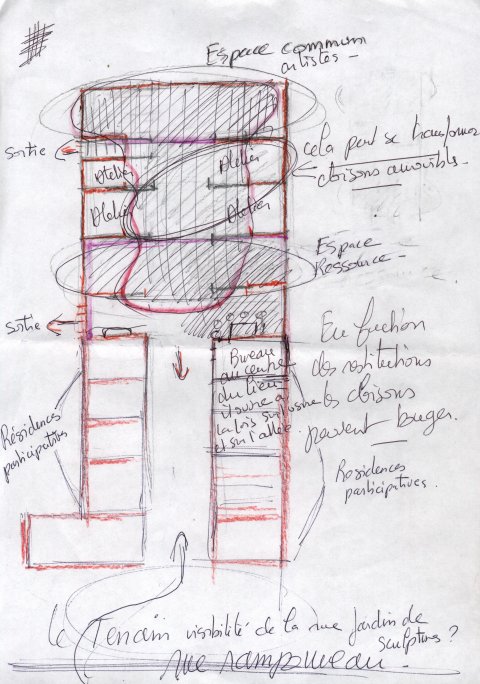 Espace commun
artistes -
Sortie
cela peut se transformer
cloisons amovibles -
Atelier
Atelier
Atelier
Atelier
Espace
Ressource -
Sortie
En fonction
des restitutions
les cloisons
peuvent bouger.
Bureau
au centre
du lieu
ouvre à
la fois sur
et sur l'allée.
Résidences
participatives
Résidences
participatives.
le Terrain visibilité de la rue Jardin de
sculptures ?
rue ramponeau -